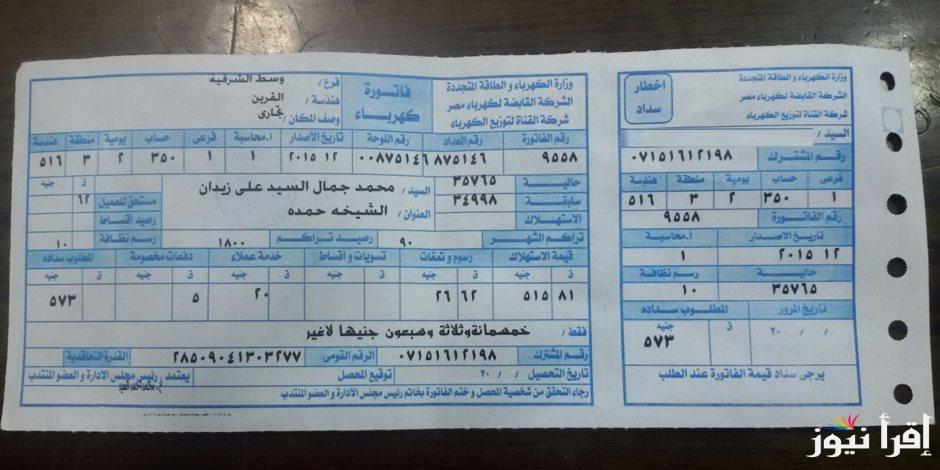 وزارة الكهرباء و الطاقة المتجددة
الشركة القابضة لكهرباء مصر
شركة القناة لتوزيع الكهرباء
فاتورة
كهرباء
فرع / وسط الشرقية
هندسة / القرين
وصف المكان / تجارى
رقم الفاتورة رقم العداد رقم اللوحة تاريخ الاصدار ا.محاسبة فرعى حساب يومية منطقة هندسة
٩٥٥٨ ٨٧٥١٤٦ ٠٠٨٧٥١٤٦ ٢٠١٥ ١٢ ١ ١ ٣٥٠ ٢ ٣ ٥١٦
حالية ٣٥٧٦٥
سابقة ٣٤٩٩٨
الاستهلاك
السيد / محمد جمال السيد على زيدان
العنوان / الشيخه حمده
ق جنيه
مستحق للعميل ٦٢
رصيد أقساط
تراكم الشهر ٩٠ رصيد تراكم ١٨٠٠ رسم نظافة ١٠
قيمة الاستهلاك رسوم و تمغات تسويات و أقساط خدمة عملاء دفعات مخصومة المطلوب سداده
ق جنيه ق جنيه ق جنيه ق جنيه ق جنيه ق جنيه
٨١ ٥١٥ ٦٢ ٢٦ ٢٠ ٥ ٥٧٣
فقط / خمسمائةوثلاثة وسبعون جنيها لاغير
رقم المشترك ٠٧١٥١٦١٢١٩٨ الرقم القومى ٢٨٥٠٩٠٤١٣٠٣٢٧٧ القدرة التعاقدية
تاريخ التحصيل / / ٢٠ توقيع المحصل يعتمد رئيس مجلس الادارة و العضو المنتدب
رجاء التحقق من شخصية المحصل و ختم الفاتورة بخاتم رئيس مجلس الادارة و العضو المنتدب
وزارة الكهرباء و الطاقة المتجددة
الشركة القابضة لكهرباء مصر
شركة القناة لتوزيع الكهرباء
اخطار
سداد
السيد /
رقم المشترك ٠٧١٥١٦١٢١٩٨
فرعى حساب يومية منطقة هندسة
١ ٣٥٠ ٢ ٣ ٥١٦
رقم الفاتورة ٩٥٥٨
تاريخ الاصدار ا.محاسبة
٢٠١٥ ١٢ ١
حالية رسم نظافة
٣٥٧٦٥ ١٠
تاريخ المرور المطلوب سداده
/ / ٢٠ ق جنيه
٥٧٣
يرجى سداد قيمة الفاتورة عند الطلب
إقرأ نيوز